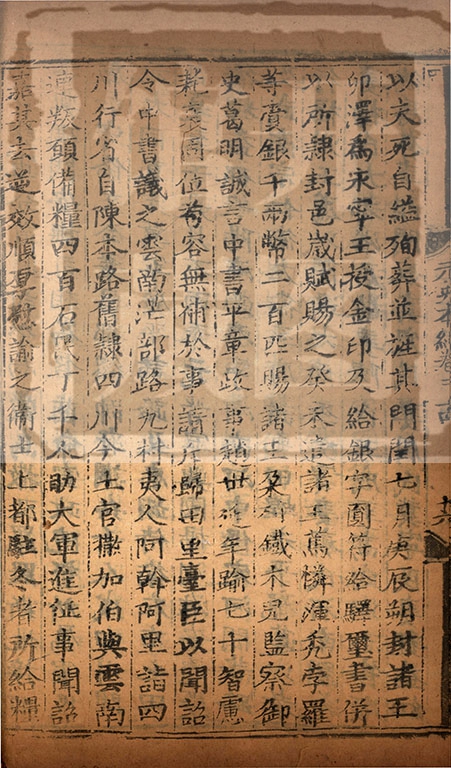 以夫死自縊殉葬並旌其門閭七月庚辰朔封諸王
卯澤為永寧王授金印及給銀字圓符給驛璽書併
以所隸封邑歲賦賜之癸未遣諸王篤憐渾禿孛羅
等賚銀千兩幣二百匹賜諸王朶列鐵木兒監察御
史葛明誠言中書平章政事趙世延年踰七十智慮
耗衰固位苟容無補於事請斥歸田里臺臣以聞詔
令中書議之雲南茫部路九村夷人阿斡阿里詣四
川行省自陳本路舊隸四川今土官撒加伯與雲南
連叛願備糧四百石民丁千人助大軍進征事聞詔
嘉其去逆效順厚慰諭之備士上都駐冬者所給糧